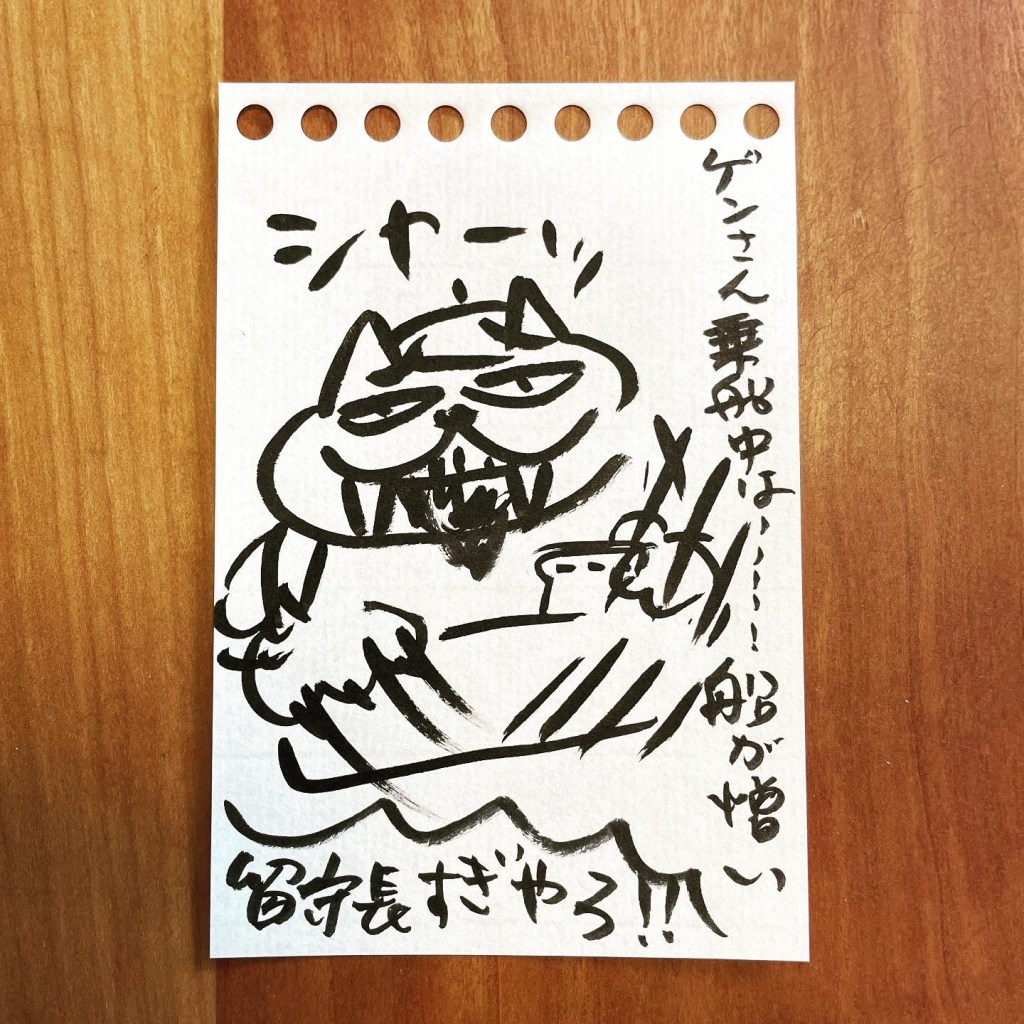 ゲンさん乗船中は、、、、、、船が憎い
シャーッ
留守長すぎやろ!!